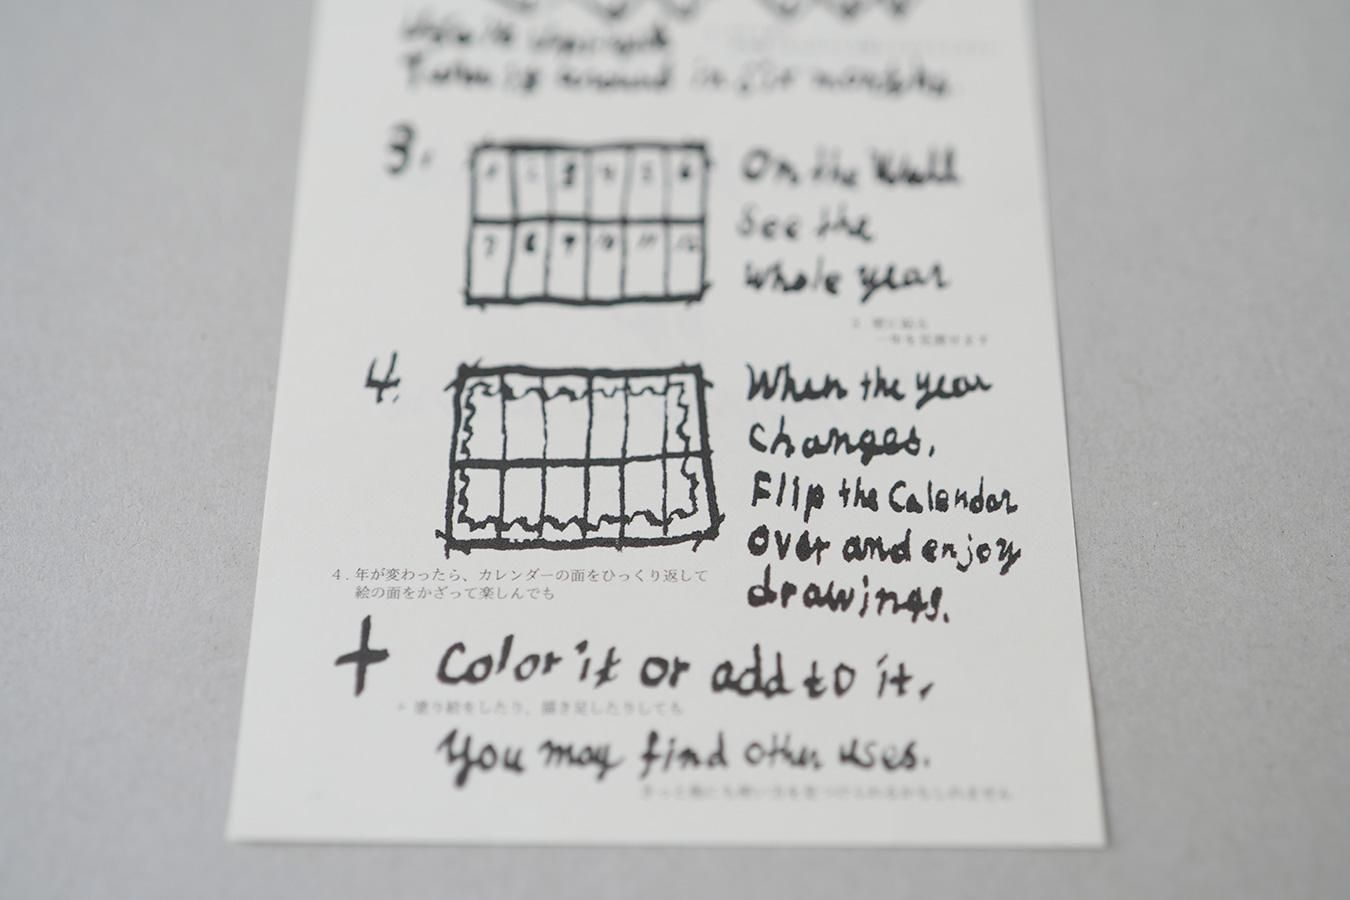 Turn it around in six months.
3.
1 2 3 4 5 6
7 8 9 10 11 12
On the Wall
See the
whole year
3. 壁に貼る
一年を見渡せます
4.
When the year
changes,
Flip the Calendar
over and enjoy
drawings.
4. 年が変わったら、カレンダーの面をひっくり返して
絵の面をかざって楽しんでも
+ Color it or add to it,
+ 塗り絵をしたり、描き足したりしても
You may find other uses.
きっと他にも使い方を見つけられるかもしれません